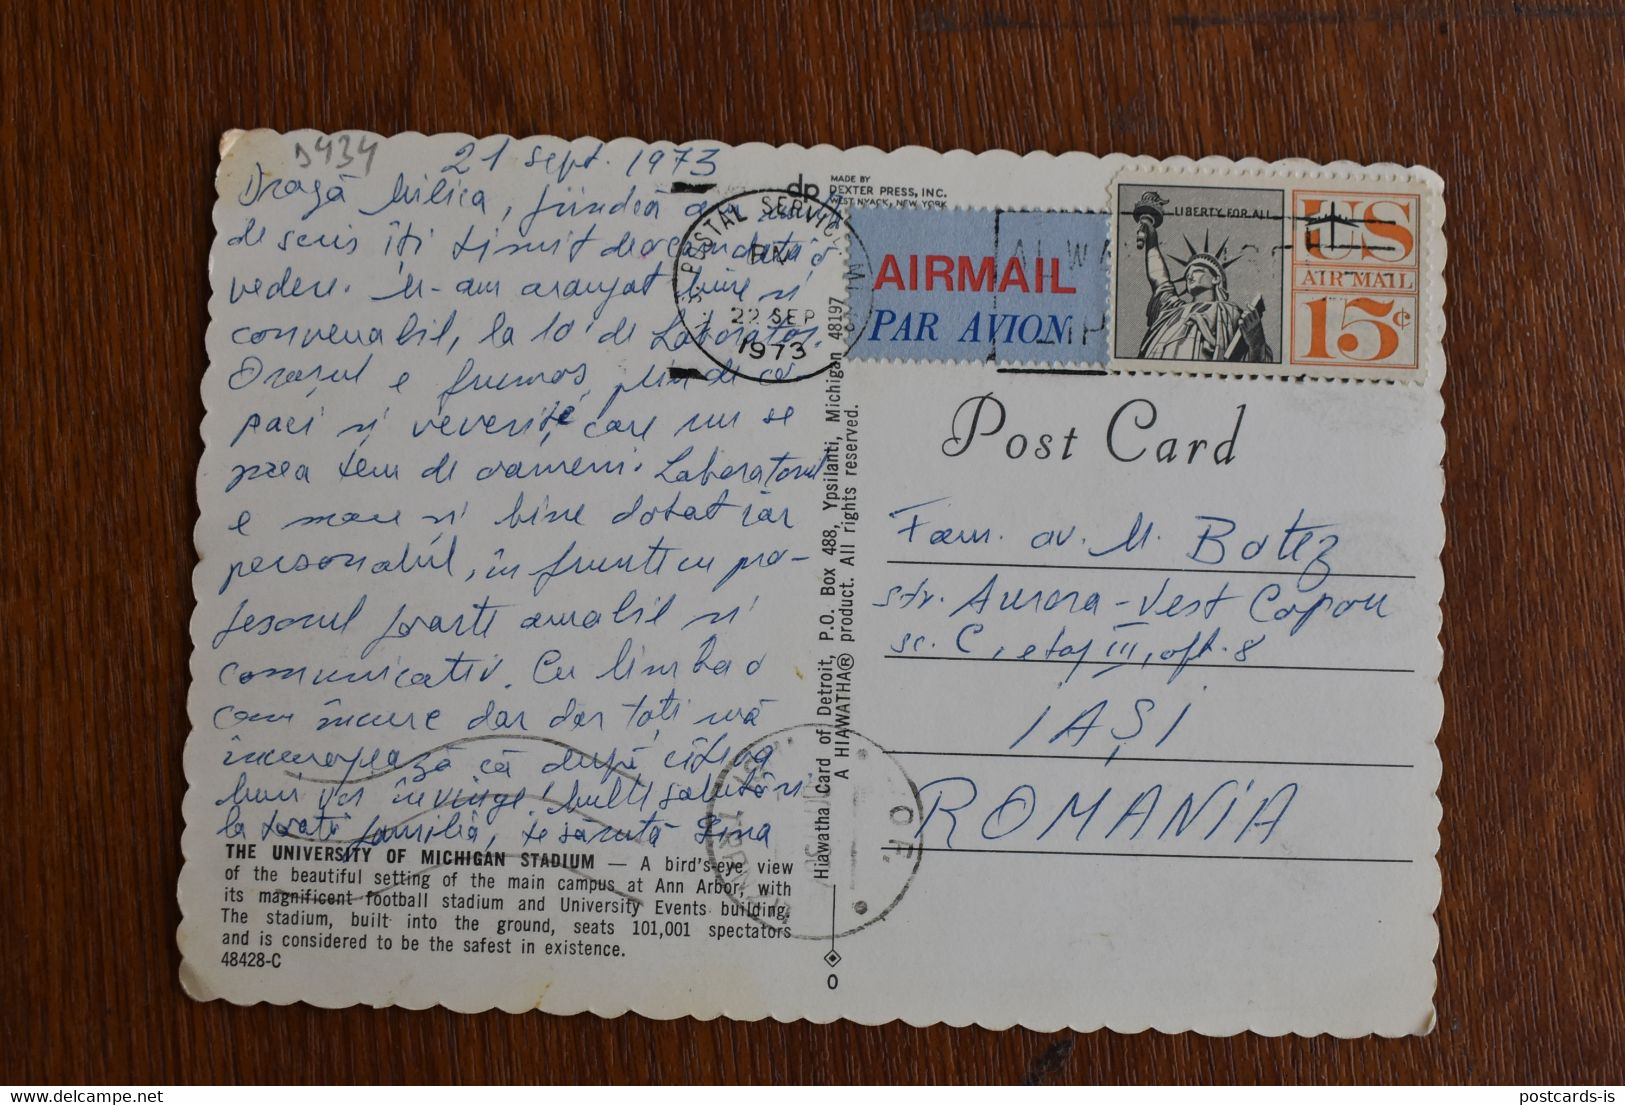 D434
21 sept. 1973
Dragă Milica, fiindcă am
de scris îți trimit deocamdată o
vedere. M-am aranjat bine și
convenabil, la 10' de Laborator.
Orașul e frumos, plin de co-
paci și veverițe, care nu se
prea tem de oameni. Laboratorul
e mare și bine dotat iar
personalul, în frunte cu pro-
fesorul foarte amabil și
comunicativ. Cu limba o
cam încurc dar toți mă
încurajează că după câteva
luni voi învinge. Multe salutări
la toată familia, te sărută
THE UNIVERSITY OF MICHIGAN STADIUM — A bird's-eye view
of the beautiful setting of the main campus at Ann Arbor, with
its magnificent football stadium and University Events building.
The stadium, built into the ground, seats 101,001 spectators
and is considered to be the safest in existence.
48428-C
dp
MADE BY
DEXTER PRESS, INC.
WEST NYACK, NEW YORK
POSTAL SERVICE
22 SEP
1973
AIRMAIL
PAR AVION
LIBERTY FOR ALL
US
AIR MAIL
15¢
Hiawatha Card of Detroit, P.O. Box 488, Ypsilanti, Michigan 48197
A HIAWATHA® product. All rights reserved.
0
Post Card
Fam. av. M. Botez
str. Aurora - Vest Copou
sc. C, etaj III, apt. 8
IAȘI
ROMANIA
OF.
delcampe.net
postcards-is